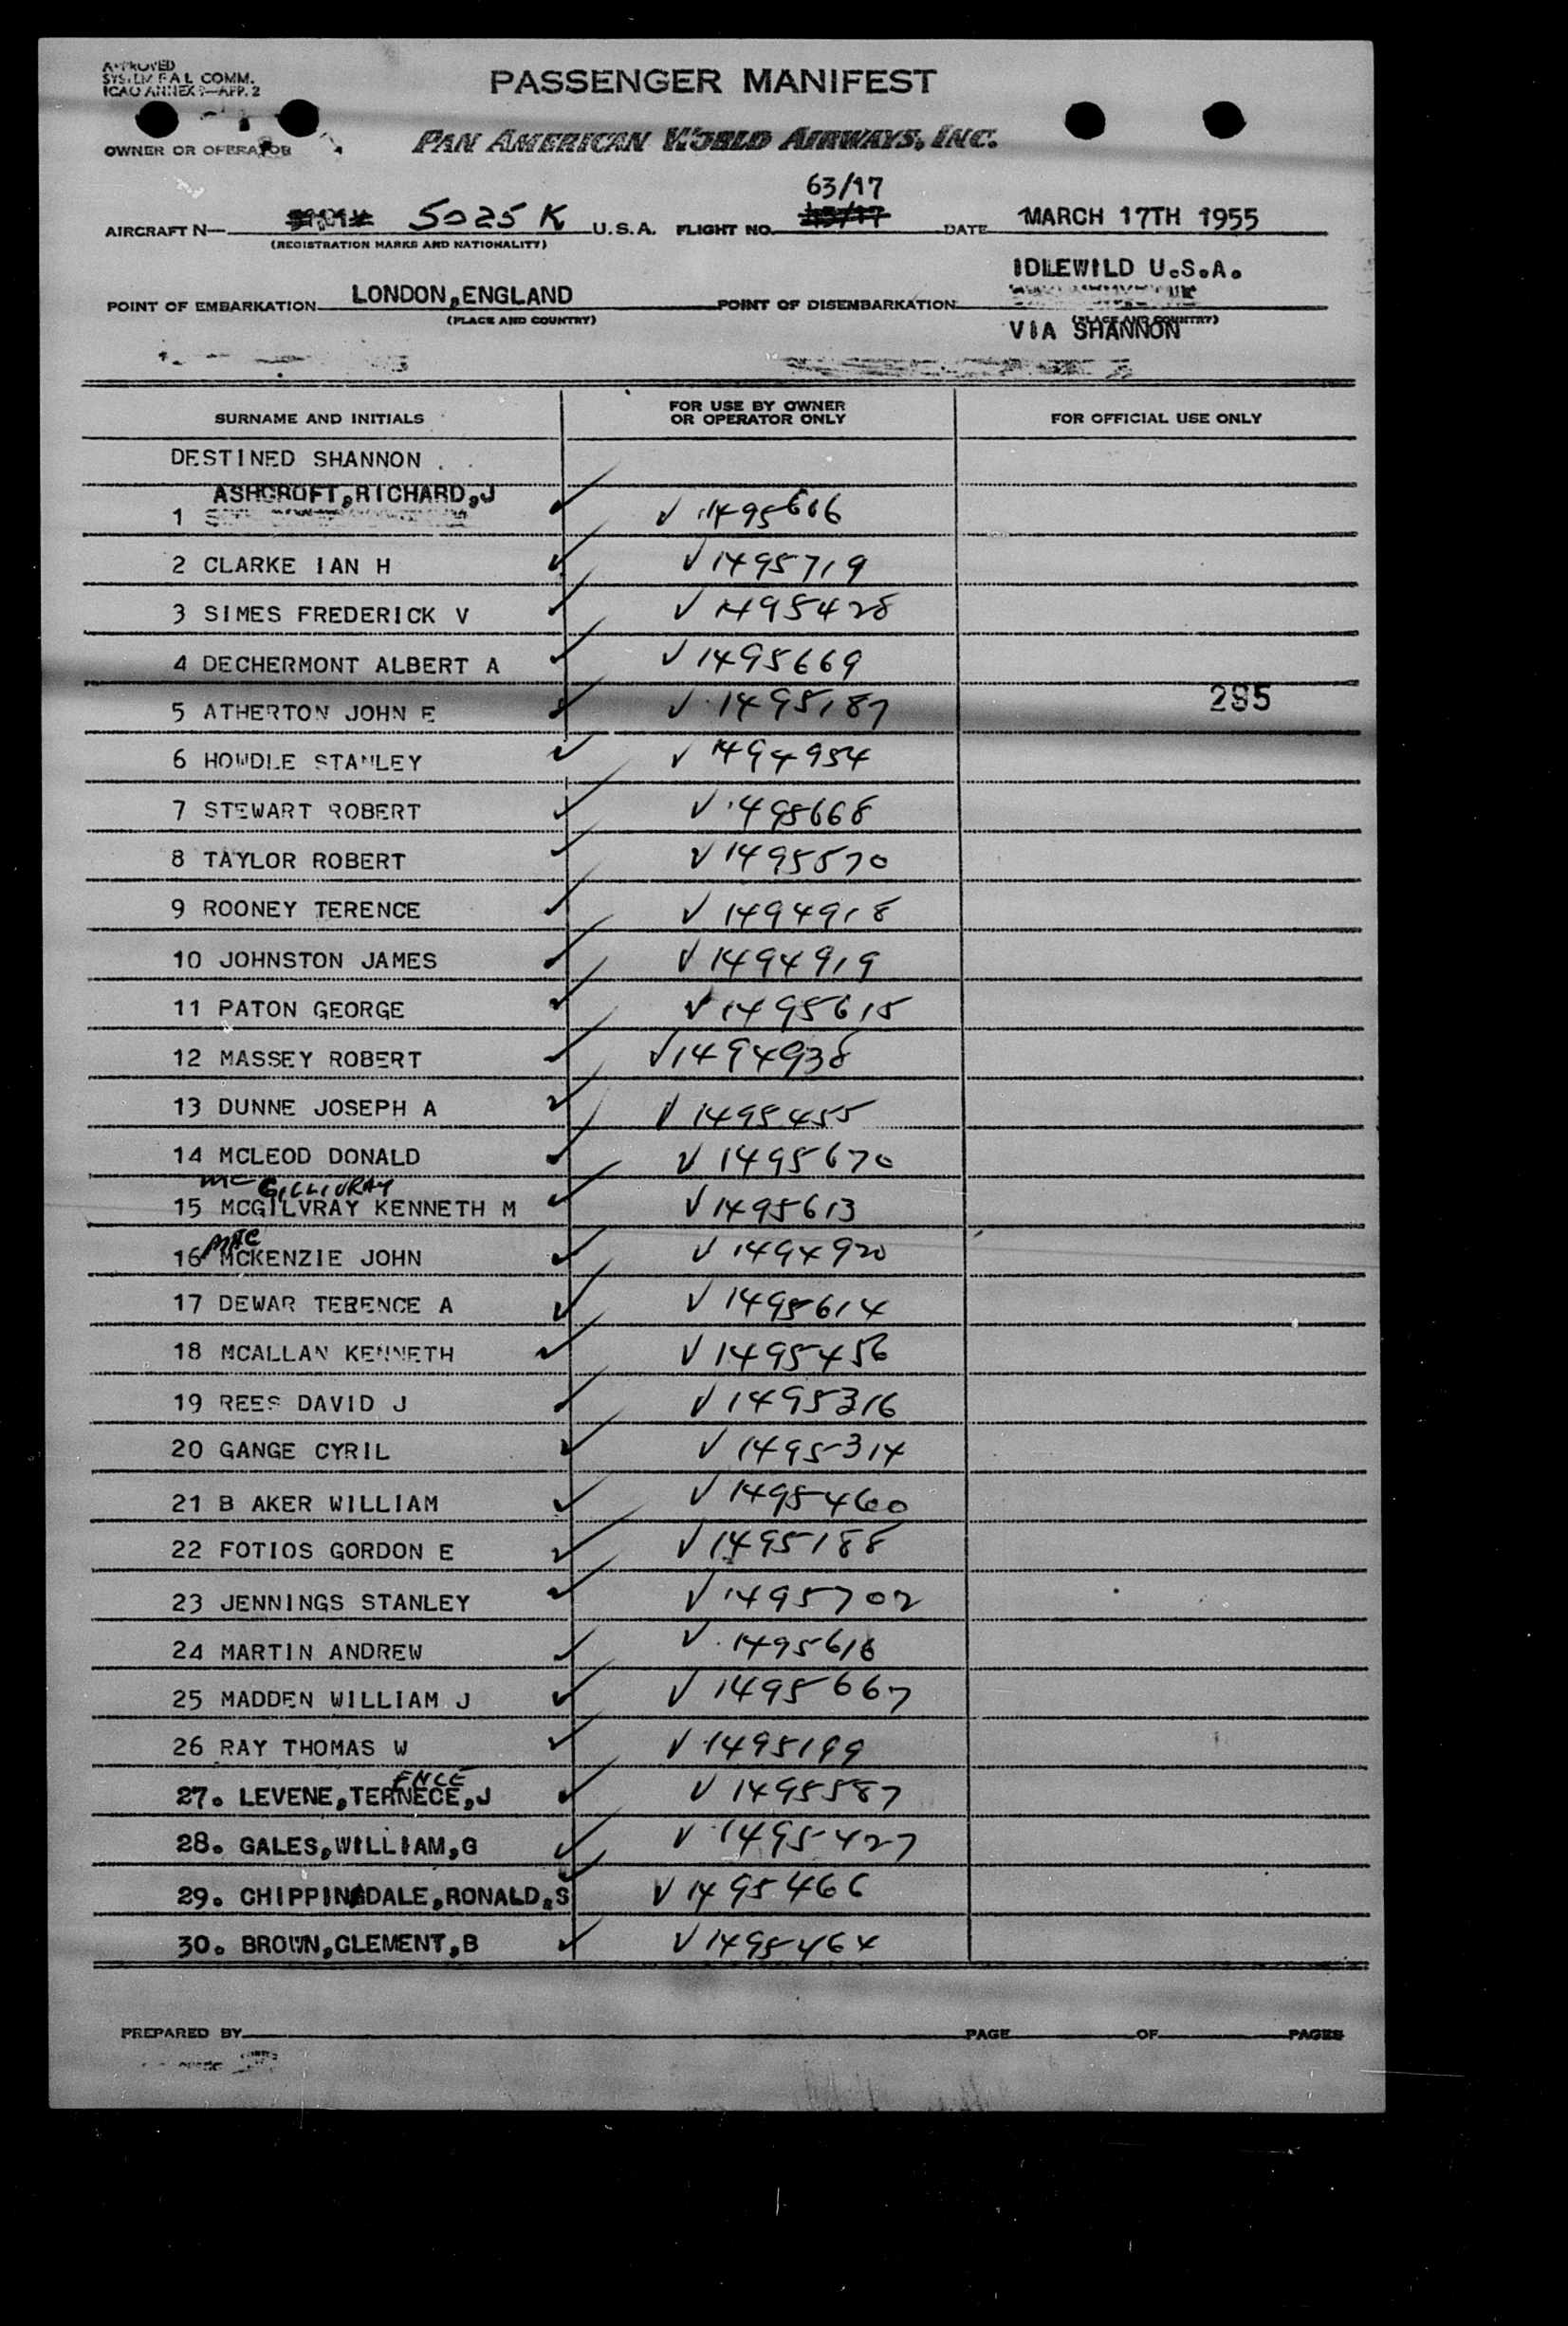 APPROVED
SYSTEM FAL COMM.
ICAO ANNEX 9—APP. 2
PASSENGER MANIFEST
OWNER OR OPERATOR
PAN AMERICAN WORLD AIRWAYS, INC.
63/17
AIRCRAFT N— 5025 K U.S.A. FLIGHT NO. 45/17 DATE MARCH 17TH 1955
(REGISTRATION MARKS AND NATIONALITY)
IDLEWILD U.S.A.
POINT OF EMBARKATION LONDON,ENGLAND POINT OF DISEMBARKATION
(PLACE AND COUNTRY) (PLACE AND COUNTRY)
VIA SHANNON
SURNAME AND INITIALS FOR USE BY OWNER OR OPERATOR ONLY FOR OFFICIAL USE ONLY
DESTINED SHANNON
ASHCROFT,RICHARD,J
1 ✓ ✓ 1495616
2 CLARKE IAN H ✓ ✓ 1495719
3 SIMES FREDERICK V ✓ ✓ 1495428
4 DECHERMONT ALBERT A ✓ ✓ 1495669
5 ATHERTON JOHN E ✓ ✓ 1495187 295
6 HOWDLE STANLEY ✓ ✓ 1494954
7 STEWART ROBERT ✓ ✓ 1495668
8 TAYLOR ROBERT ✓ ✓ 1495570
9 ROONEY TERENCE ✓ ✓ 1494918
10 JOHNSTON JAMES ✓ ✓ 1494919
11 PATON GEORGE ✓ ✓ 1495615
12 MASSEY ROBERT ✓ ✓ 1494938
13 DUNNE JOSEPH A ✓ ✓ 1495455
14 MCLEOD DONALD ✓ ✓ 1495670
MC GILLIVRAY
15 MCGILVRAY KENNETH M ✓ ✓ 1495613
MAC
16 MCKENZIE JOHN ✓ ✓ 1494920
17 DEWAR TERENCE A ✓ ✓ 1495614
18 MCALLAN KENNETH ✓ ✓ 1495456
19 REES DAVID J ✓ ✓ 1495316
20 GANGE CYRIL ✓ ✓ 1495314
21 B AKER WILLIAM ✓ ✓ 1495460
22 FOTIOS GORDON E ✓ ✓ 1495188
23 JENNINGS STANLEY ✓ ✓ 1495702
24 MARTIN ANDREW ✓ ✓ 1495618
25 MADDEN WILLIAM J ✓ ✓ 1495667
26 RAY THOMAS W ✓ ✓ 1495199
ENCE
27. LEVENE,TERNECE,J ✓ ✓ 1495587
28. GALES,WILLIAM,G ✓ ✓ 1495427
29. CHIPPINGDALE,RONALD,S ✓ ✓ 1495466
30. BROWN,CLEMENT,B ✓ ✓ 1495464
PREPARED BY PAGE OF PAGES